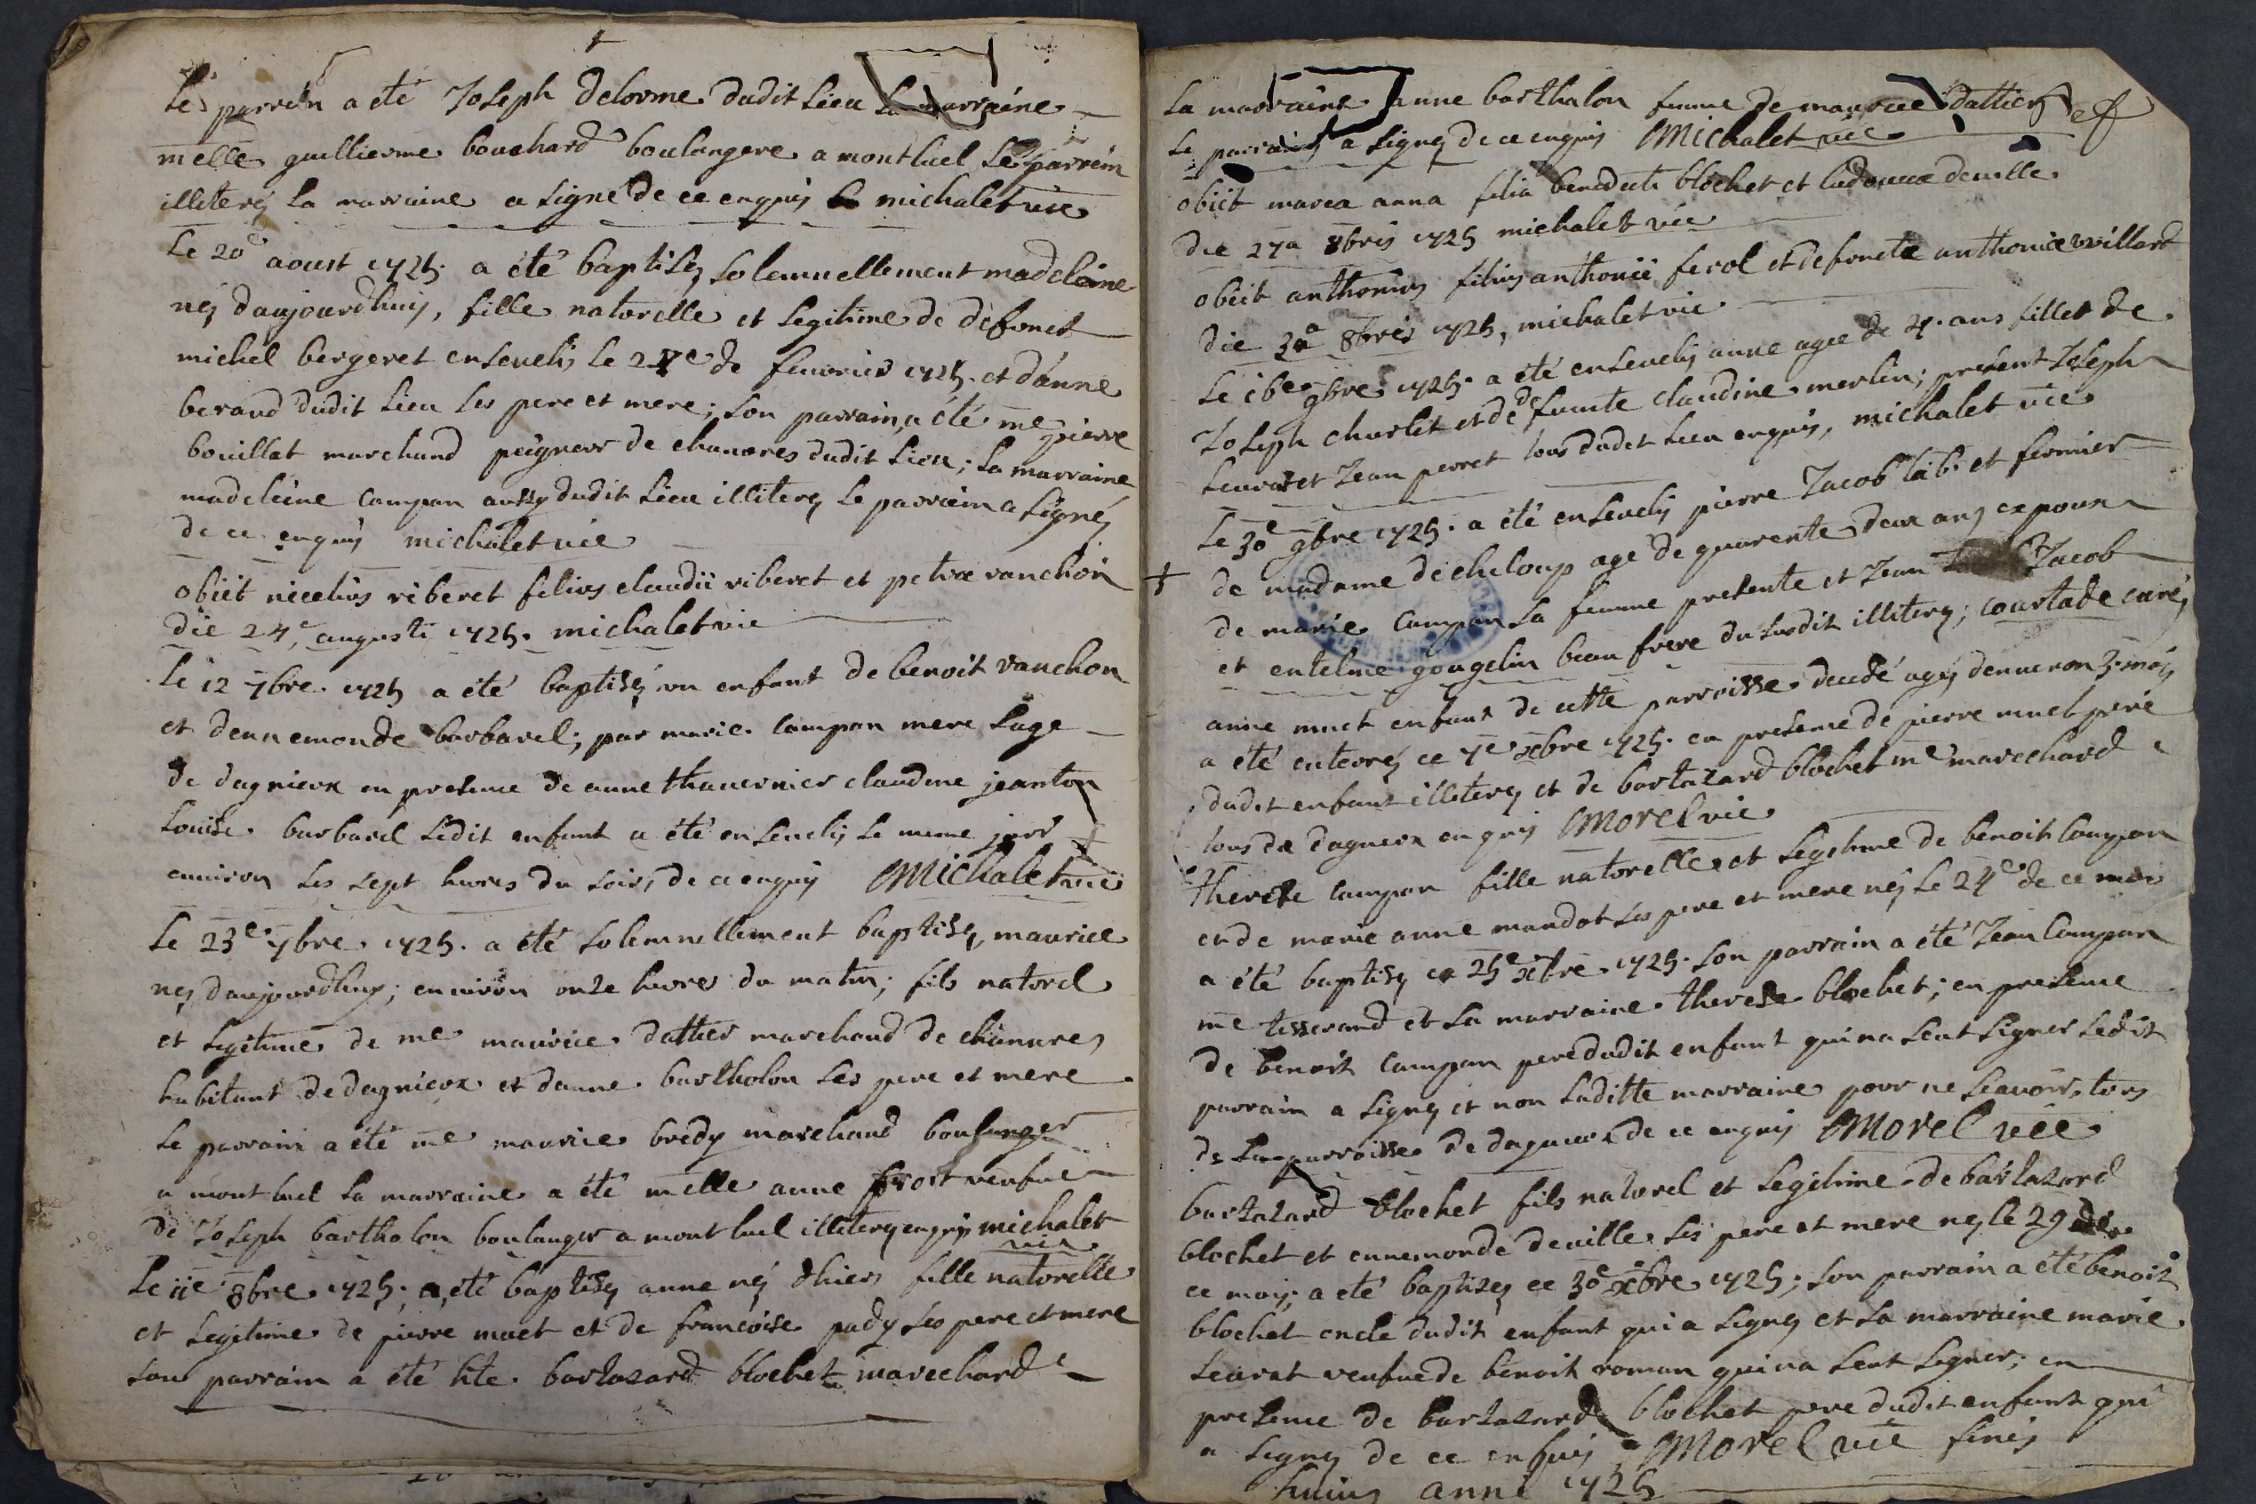 Le parrein a eté Joseph Delorme dudit Lieu La marraine
melle guillierme bouchard boulangere a montluel Le parrein
illiterés La marraine a Signé de ce enquis michalet vic
Le 20e aoust 1725. a été baptisés solemnellement madeleine
néj daujourdhuy, fille naturelle et Legitime de defonct
michel bergeret ensevelis le de feuvrier 1725. et danne
berand dudit Lieu Ses pere et mere; Son parrain a été me pierre
bouillat marchand peigneur de chanvres dudit Lieu; La marraine
madeleine campan aussy dudit Lieu illiteres Le parrein a Signéj
de ce enquis michalet vic
obiit nicolius riberet filius claudii riberet et petræ vanchon
die 24e augusti 1725. michalet vic
Le 12 7bre. 1725 a été baptiséj un enfant de benoit vanchon
et dennemonde barbarel; par marie campan mere Sage
de dagnieux en presence de anne thavernier claudine jeanton
Louise barbarel Ledit enfant a été ensevelis le meme jour
environ les sept heures du soir, de ce enquis Michalet vic
Le 23e 7bre. 1725. a été solemnellement baptisés, maurice
néj daujourdhuy; environ onze heures du matin; fils naturel
et Legitime de me maurice dattier marchand de chanvres
habitant de dagnieux et danne bartholon Ses pere et mere
Le parrain a été me maurice bredy marchand boulanger
a mont luel La marraine a été melle anne prost veufue
de Joseph bartholon boulanger a mont luel illiterés enquis michalet
vic
Le 11e 8bre. 1725; a été baptisés anne néj dhier fille naturelle
et Legitime de pierre muet et de francoise pady Ses pere et mere
Son parrain a été hte. bartazard blochet marechard
La marraine anne barthalon femme de maurice dattier et
Le parrain a Signéj de ce enquis Michalet vic
obiit maria anna filia benedicti blochet et ludovicæ deuille
die 27a 8bris 1725 michalet vic
obiit anthonius filius anthonii ferol et defonctæ anthoniæ villard
die 30a 8bris 1725, michalet vic
Le 16e 9bre 1725. a été ensevelis anne agée de 4. ans fille de
Joseph charlet et de defunte claudine merlin; present Joseph
Seurat et Jean perret tous dudit Lieu enquis, michalet vic
Le 30e 9bre 1725. a été ensevelis pierre Jacob lab. et fermier
de madame de cheloup agé de quarente deux ans epoux
de marie campan Sa femme presente et Jean Jacob
et entelme gougelin beau frere du Susdit illiteres; courtade curéj
anne muet enfant de cette parroisse decedé agéj denviron 3. mois
a été enterrés ce 7e xbre 1725. en presence de pierre muet pere
dudit enfant illiterés et de bartazard blochet me marechard
tous de dagneux enquis Morel vic
therese campan fille naturelle et Legitime de benoit campan
et de marie anne mandot Ses pere et mere néj le 24e de ce mois
a été baptisés ce 25e xbre. 1725. Son parrain a été Jean campan
me tisserand et Sa marraine therese blochet; en presence
de benoit campan pere dudit enfant qui na Seut Signer Ledit
parrain a Signéj et non Laditte marraine pour ne Scavoir, tous
de La parroisse de dagneux de ce enquis Morel vic
bartazard blochet fils naturel et Legitime de bartazard
blochet et ennemonde deuille, Ses pere et mere néj le 29 de
ce mois, a été baptisés ce 30e xbre 1725; Son parrain a été benoit
blochet oncle dudit enfant qui a Signéj et La marraine marie
Seurat veufue de benoit roman qui na Seut Signer; en
presence de bartazard blochet pere dudit enfant qui
a Signéj de ce enquis Morel vic finis
huius anni 1725